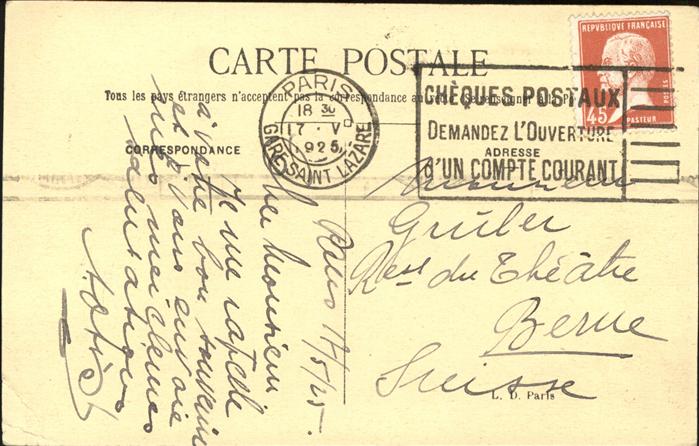 REPVBLIQUE FRANÇAISE
POSTES
45c
PASTEUR
CARTE POSTALE
Tous les pays étrangers n'acceptent pas la correspondance au
PARIS
18 30
17 · V
1925
GARE SAINT LAZARE
CHÈQUES POSTAUX
DEMANDEZ L'OUVERTURE
d'UN COMPTE COURANT
CORRESPONDANCE
ADRESSE
Paris 17/5/25.
Cher Monsieur
Je me rapelle
à votre bon souvenir
et vous envoie
mes meilleures
salutations
Monsieur
Gruber
Rest du Théâtre
Berne
Suisse
L. D. Paris